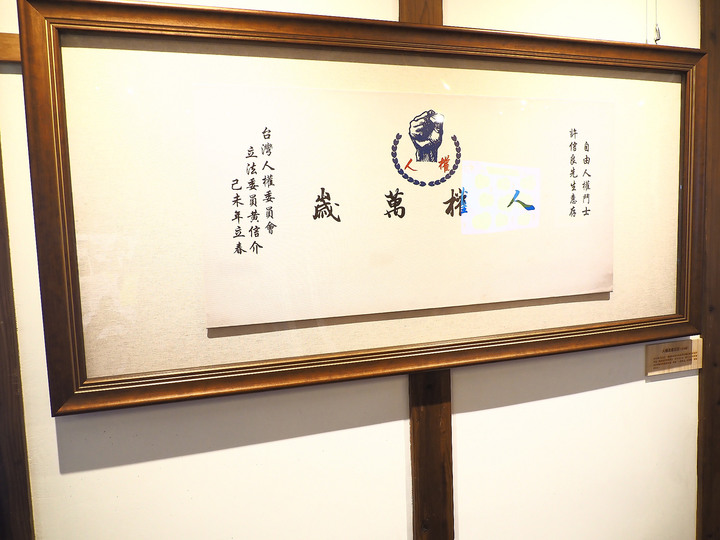 自由人權鬥士
許信良先生惠存
人權
人權萬歲
台灣人權委員會
立法委員黃信介
己未年立春